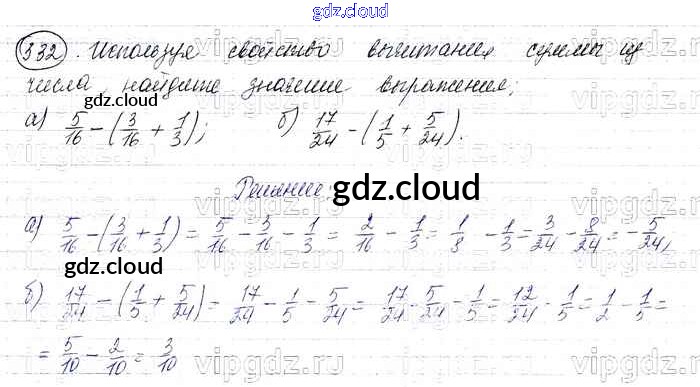 gdz.cloud
332. Используя свойство вычитания суммы из
числа, найдите значение выражения;
gdz.cloud
а) 5/16 − (3/16 + 1/3); б) 17/24 − (1/5 + 5/24).
gdz.cloud
Решение: gdz.cloud
а) 5/16 − (3/16 + 1/3) = 5/16 − 3/16 − 1/3 = 2/16 − 1/3 = 1/8 − 1/3 = 3/24 − 8/24 = −5/24,
gdz.cloud
б) 17/24 − (1/5 + 5/24) = 17/24 − 1/5 − 5/24 = 17/24 − 5/24 − 1/5 = 12/24 − 1/5 = 1/2 − 1/5 =
= 5/10 − 2/10 = 3/10
gdz.cloud